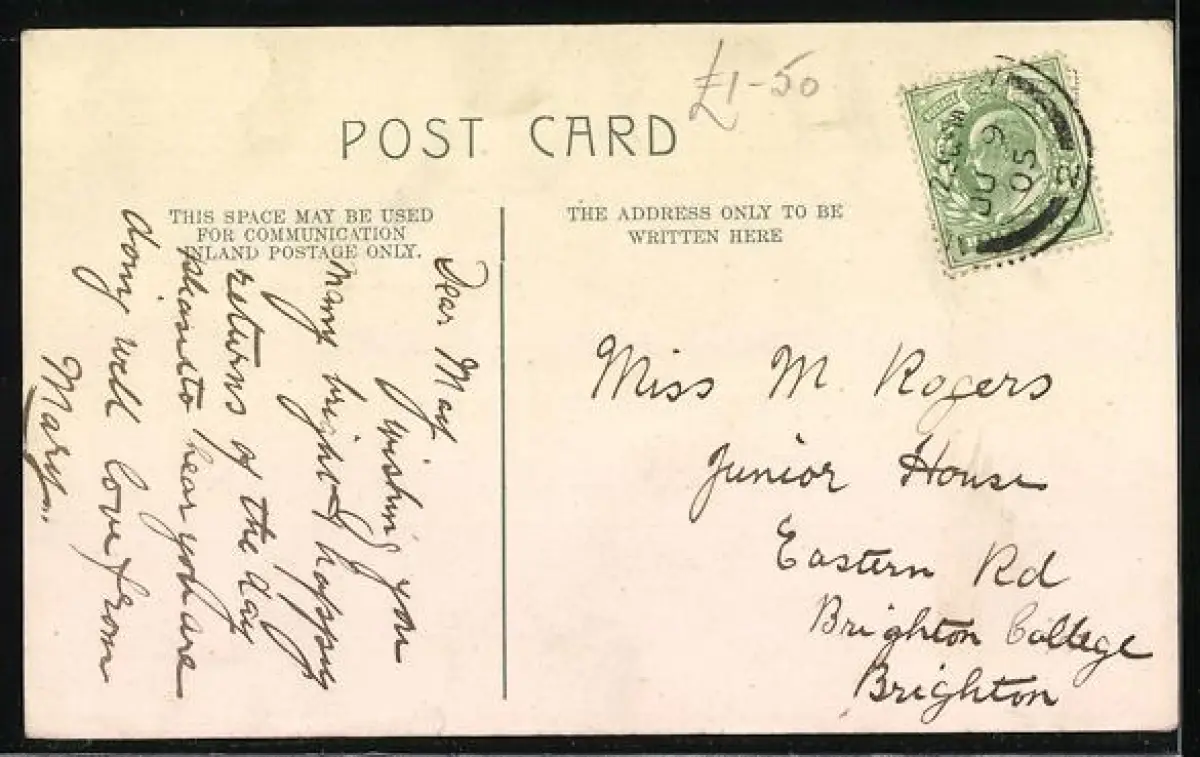 £1-50
POST CARD
THIS SPACE MAY BE USED
FOR COMMUNICATION
INLAND POSTAGE ONLY.
THE ADDRESS ONLY TO BE
WRITTEN HERE
JU 9
05
2
Dear May
wishing you
many bright & happy
returns of the day
to hear you are
doing well love from
Mary.
Miss M. Rogers
Junior House
Eastern Rd
Brighton College
Brighton